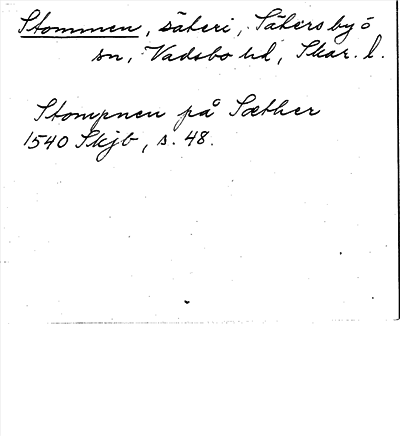 Stommen, säteri, Sätersby ö
sn, Vadsbo hd, Skar. l.
Stompnen på Sæther
1540 Skjb, s. 48.